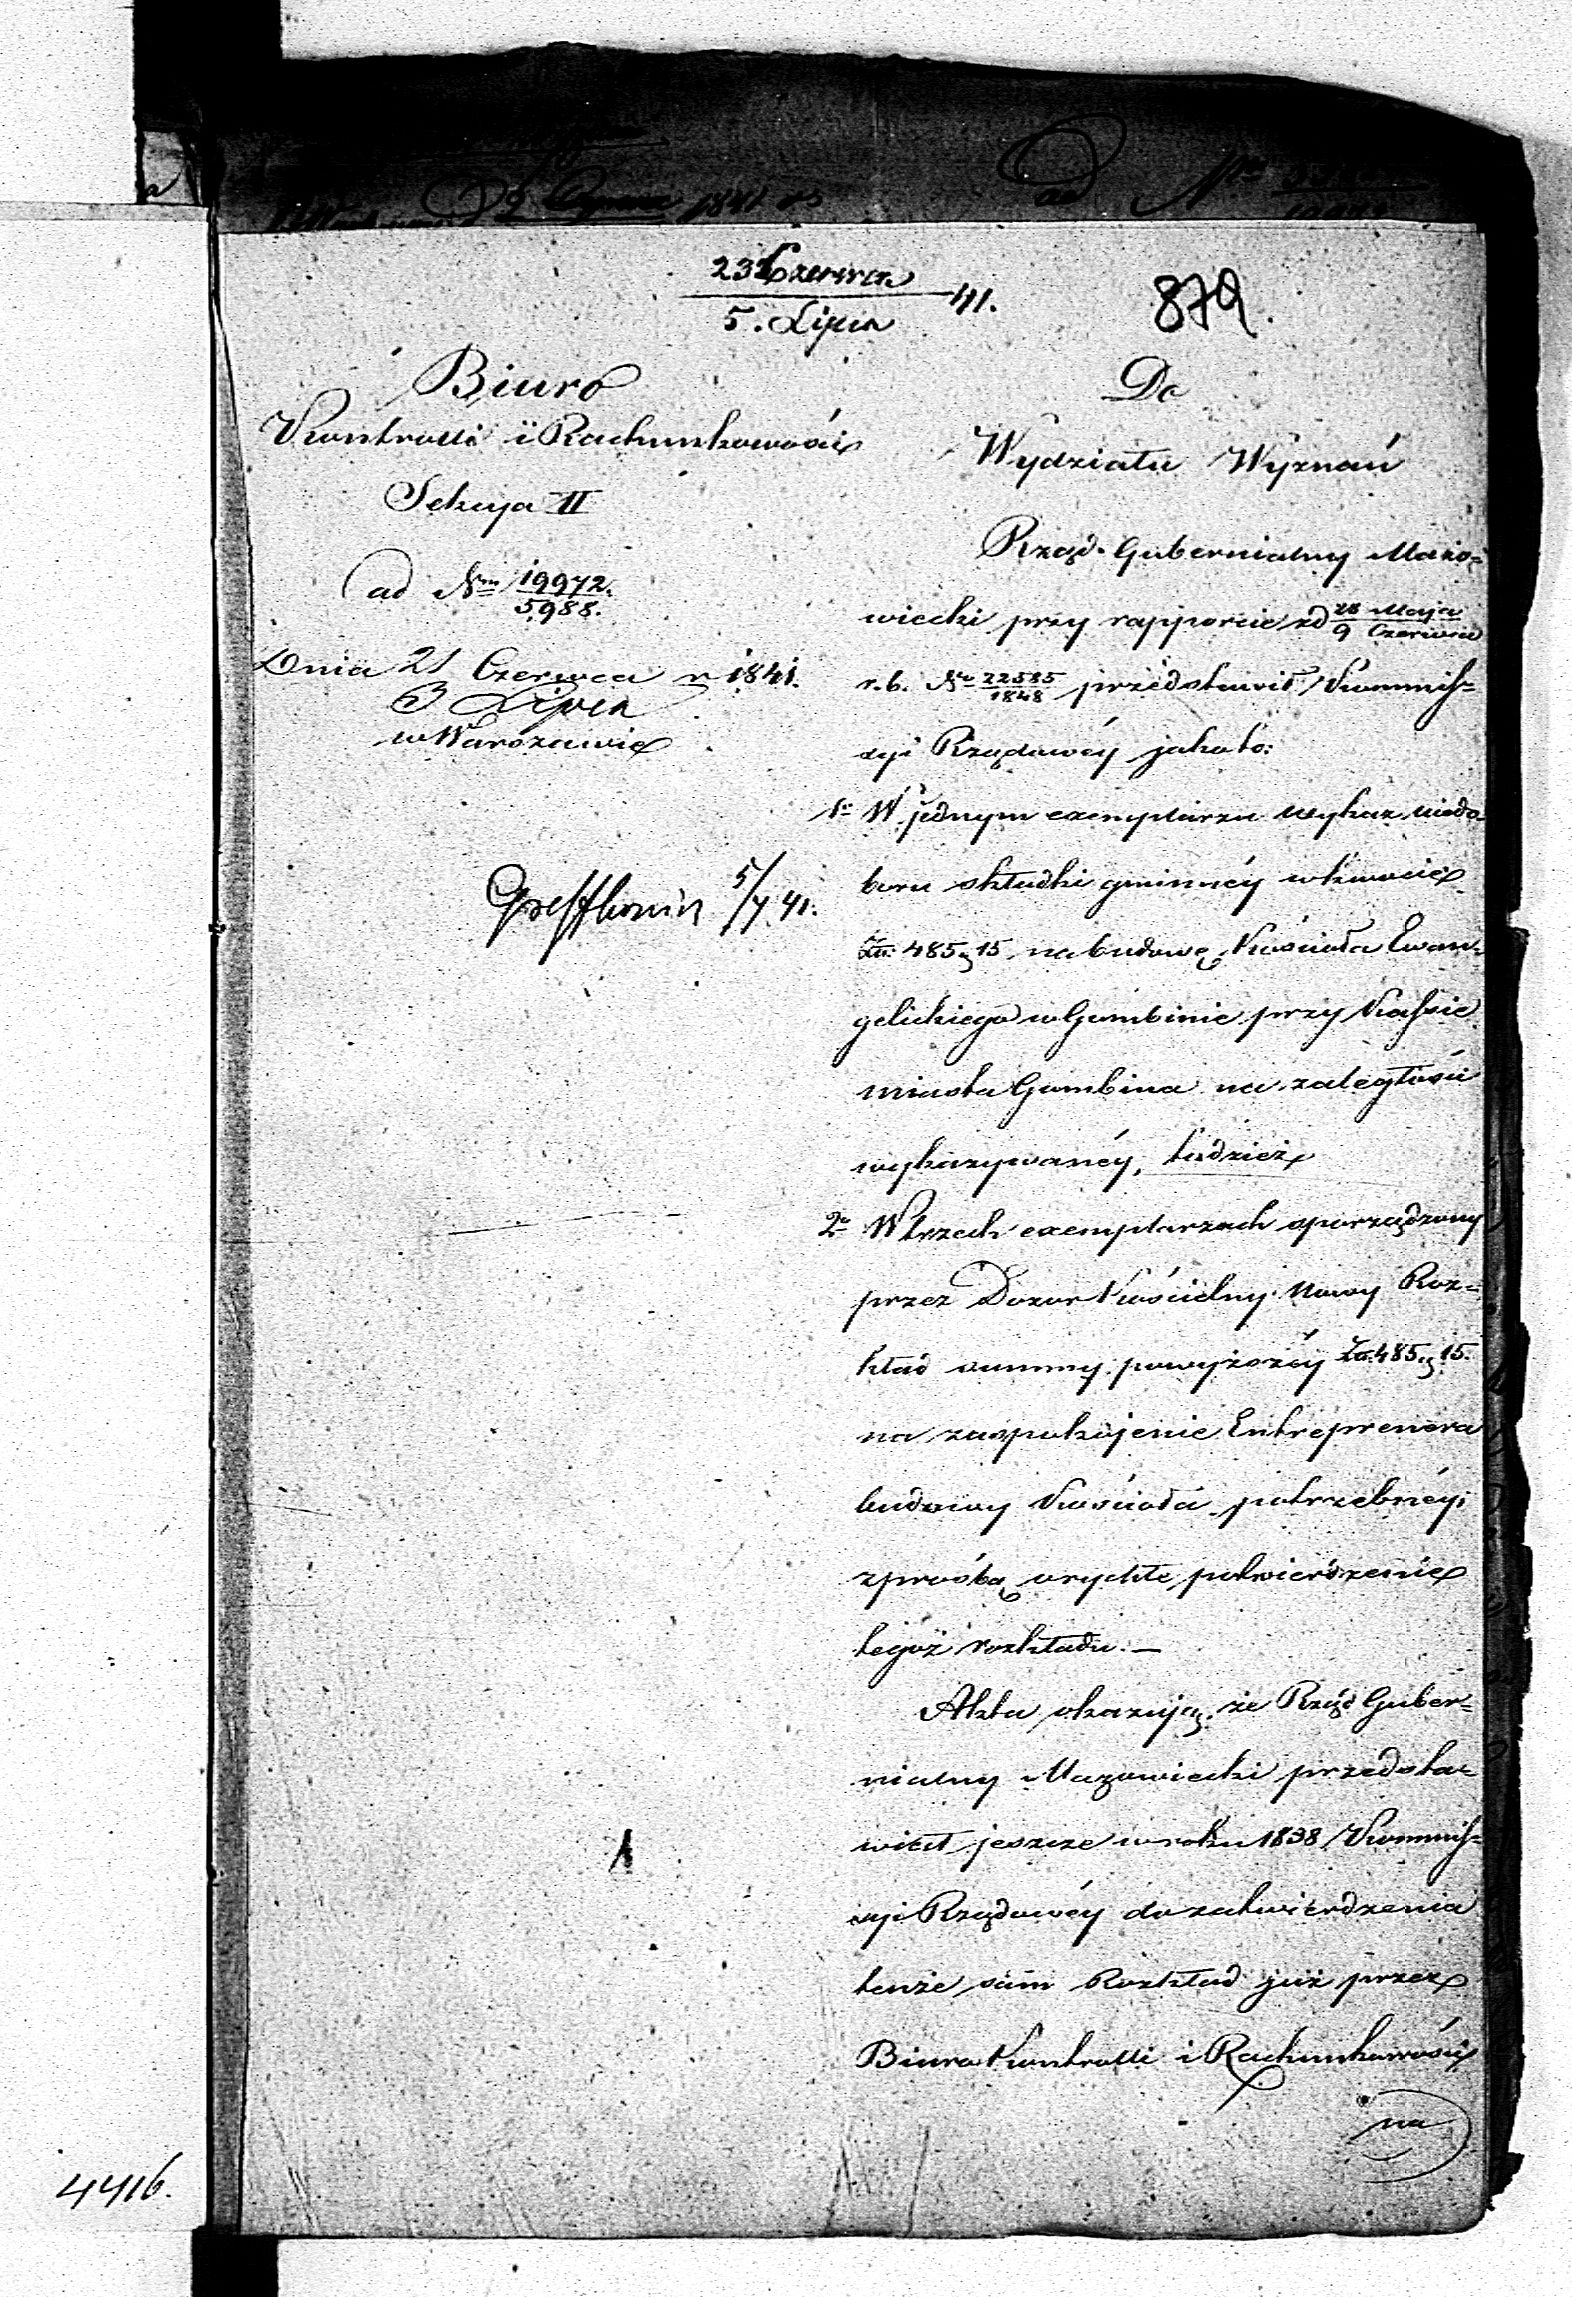 23 Czerwca
5. Lipca 41.
879.
Biuro
Kontrolli i Rachunkowości
Sekcya II
ad Nrm 19972.
5988.
Dnia 21 Czerwca r 1841.
3 Lipca
w Warszawie
5/7 41.
Do
Wydziału Wyznań
Rząd Gubernialny Mazo=
wiecki przy rapporcie zd 28 Maja
9 Czerwca
r. b. No 22585
1848 przedstawił Kommis=
syi Rządowéy jakoto:
1o W jednym exemplarzu wykaz niedo=
boru składki gminnéy w kwocie
Zł: 485 g 15. na budowę Kościoła Ewan=
gelickiego w Gombinie przy Kassie
miasta Gombina na zaległości
wykazywanéy, tudzież
2o W trzech exemplarzach sporządzony
przez Dozor Kościelny Nowy Roz=
kład summy powyższéy Zł: 485 g 15.
na zaspokojenie Entreprenera
budowy Kościoła potrzebnéy,
z prośbą o rychłe potwierdzenie
tegoż rozkładu. —
Akta okazują, że Rząd Guber=
nialny Mazowiecki przedsta=
wił jeszcze w roku 1838 Kommis=
syi Rządowéy do zatwierdzenia
tenże sam Rozkład już przez
Biuro Kontrolli i Rachunkowości
na
4416.